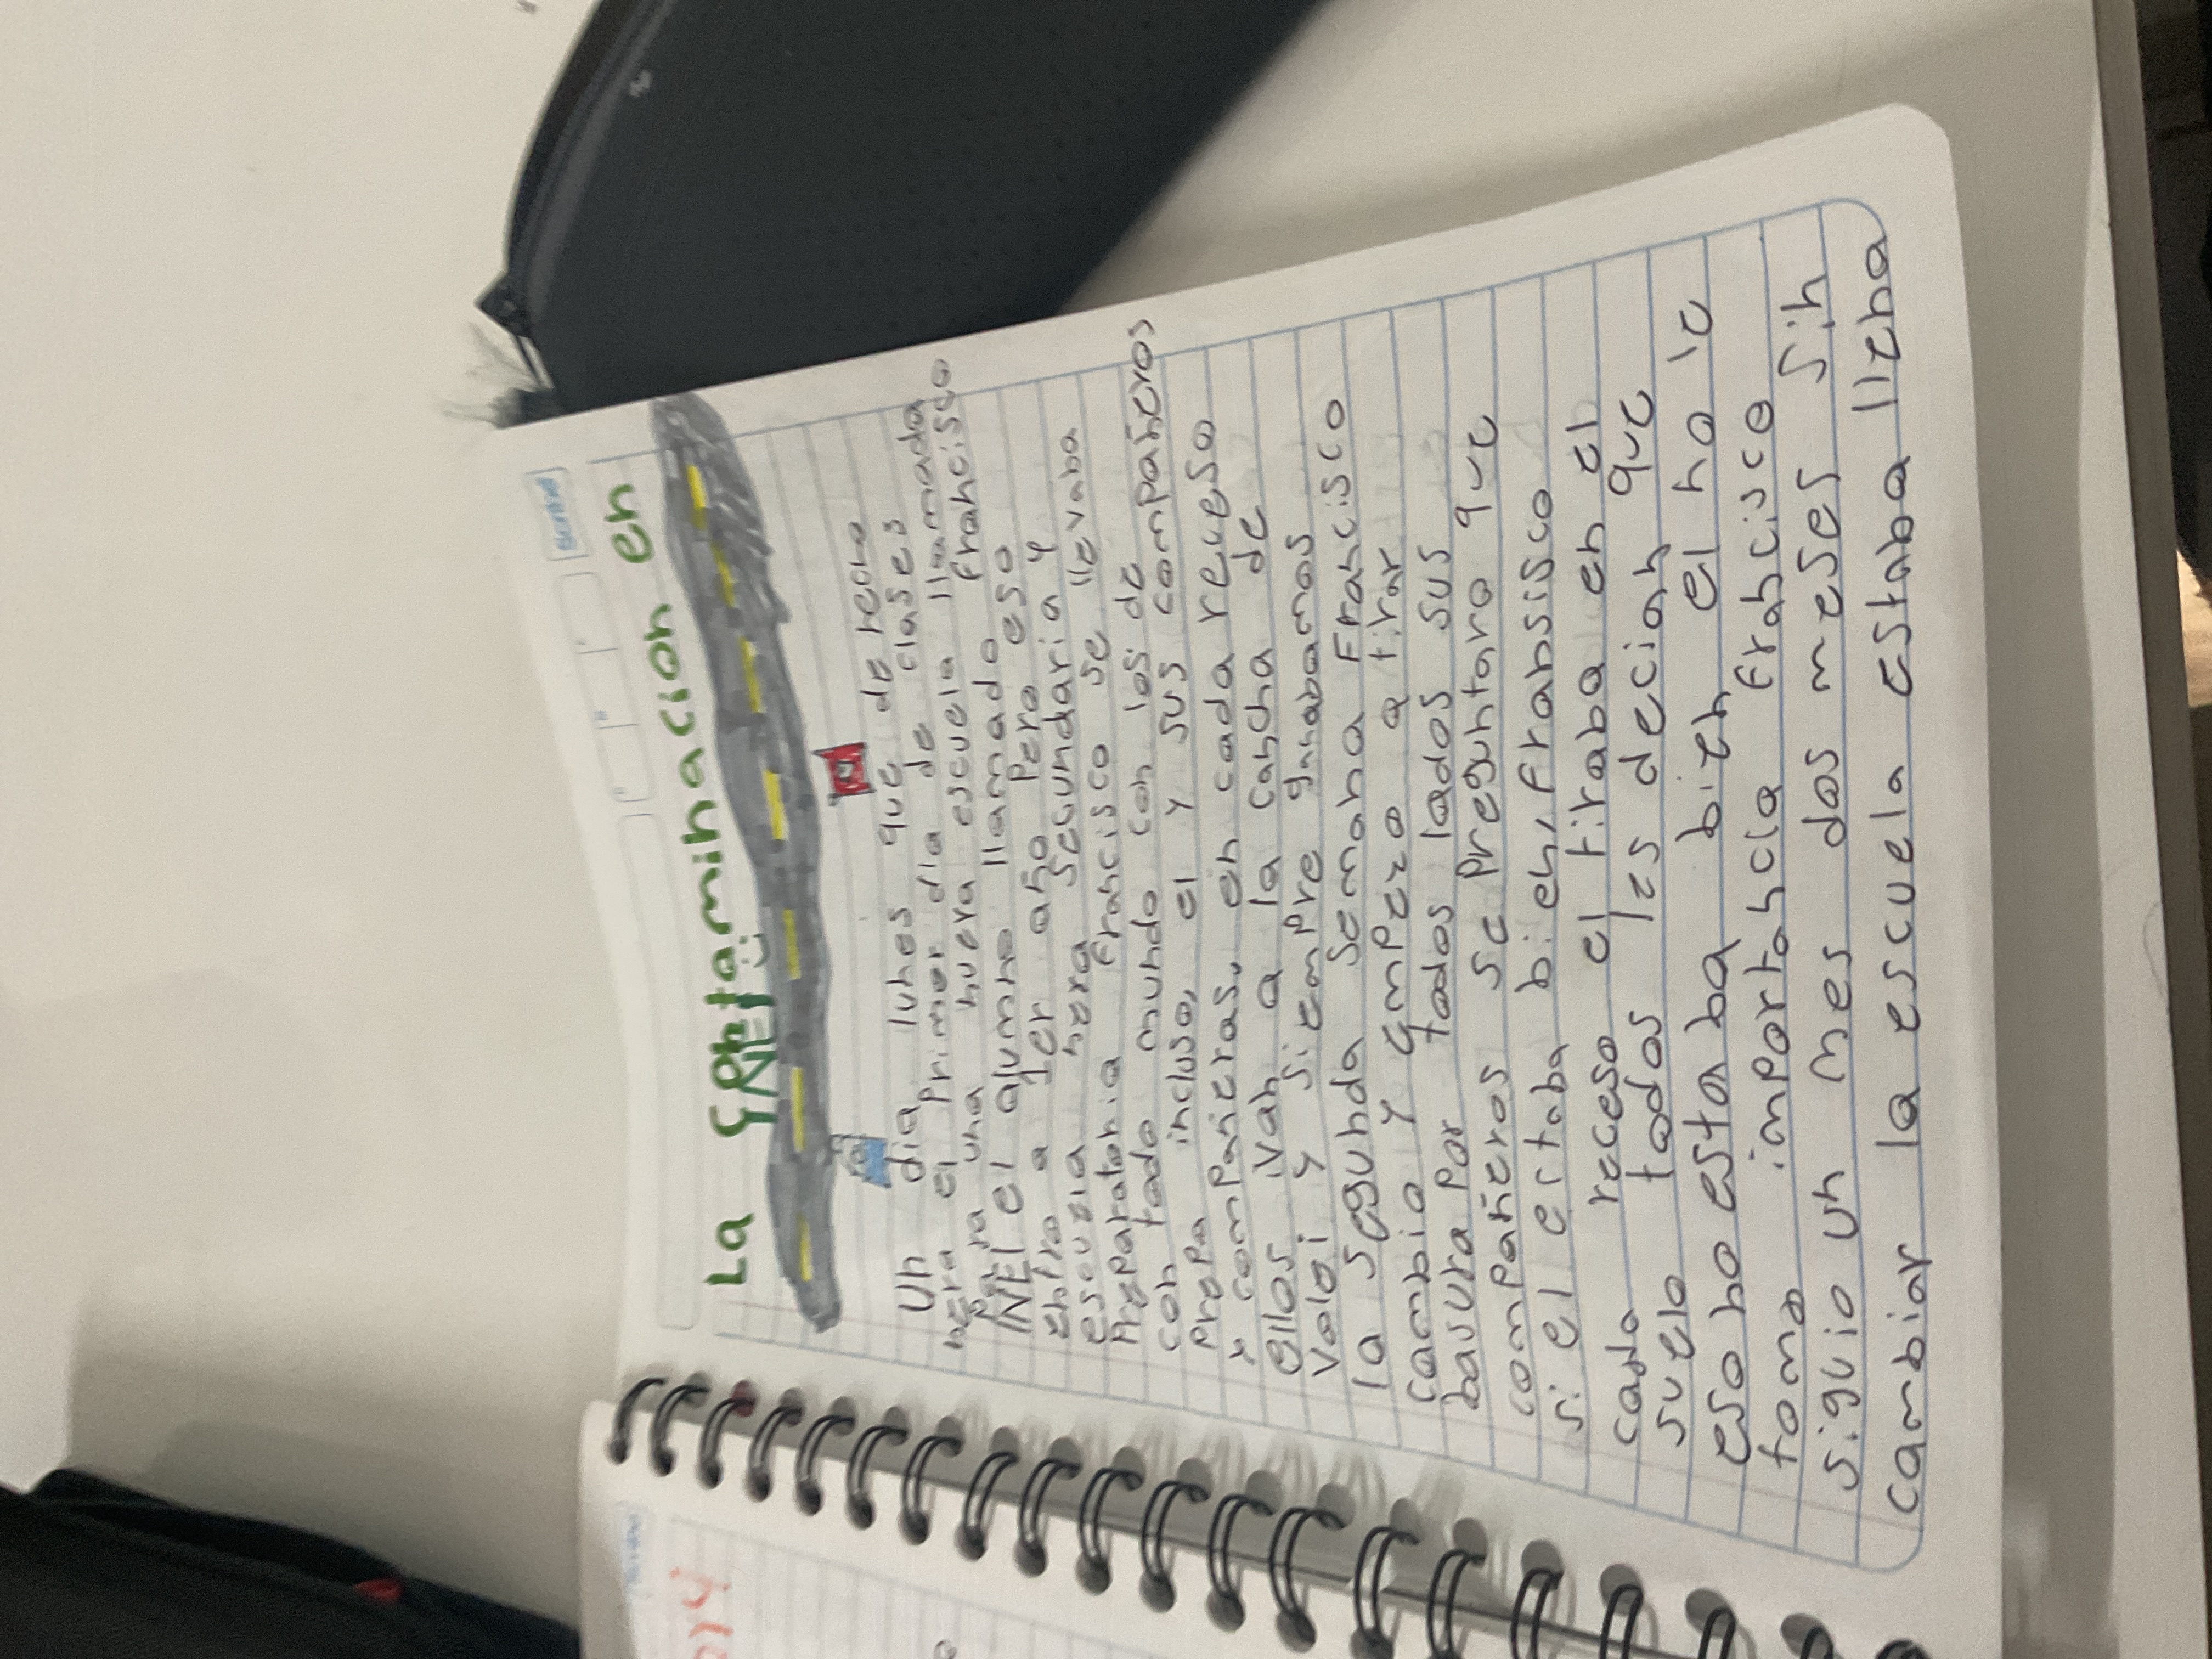 Scribe
La contaminacion en
INEI :)
Un dia lunes que de recho
nera el Primer dia de clases
Para una nueva escuela llamada
INEI el alumno llamado francisco
entro a 1er año Pero eso
escuela nera Secundaria y
Preparatoria francisco se llevaba
con todo mundo con los de
prepa incluso, el y sus compañeros
y compañeras, en cada receso
ellos ivan a la cancha de
Voloi y siempre ganabamos
la segunda semana Francisco
cambio y empezo a tirar
basura por todos lados sus
compañeros se preguntaro que
si el estaba bien, fransisco
cada receso el tiraba en el
suelo todos les decian que
eso no estaba bien el no le
tomo importancia francisco
siguio un mes dos meses sin
cambiar la escuela estaba llena